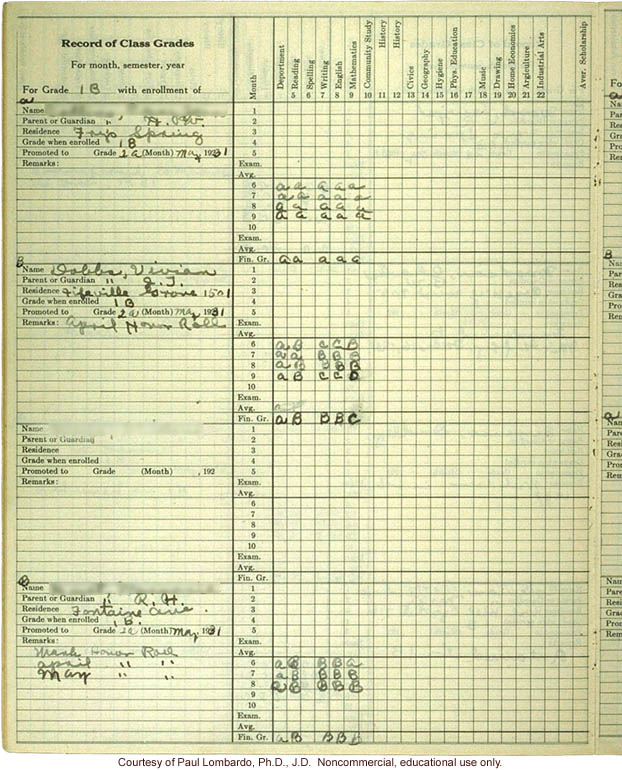 Record of Class Grades
For month, semester, year
For Grade 1 B with enrollment of
Month
Deportment
Reading 5
Spelling 6
Writing 7
English 8
Mathematics 9
Community Study 10
History 11
History 12
Civics 13
Geography 14
Hygiene 15
Phys. Education 16
17
Music 18
Drawing 19
Home Economics 20
Agriculture 21
Industrial Arts 22
Aver. Scholarship
a
Name 1
Parent or Guardian " 2
Residence Frys Spring 3
Grade when enrolled 1B 4
Promoted to Grade 2a (Month) May 1931 5
Remarks: Exam.
Avg.
6 a a a a a
7 a a a a a
8 a a a a a
9 a a a a a
10
Exam.
Avg.
Fin. Gr. a a a a a
B
Name Dobbs, Vivian 1
Parent or Guardian " J. T. 2
Residence Fifeville Grove 1501 3
Grade when enrolled 1 B 4
Promoted to Grade 2a (Month) May 1931 5
Remarks: April Honor Roll Exam.
Avg.
6 a B C C B
7 a a B B B
8 a B B B B
9 a B C C D
10
Exam.
Avg.
Fin. Gr. a B B B C
Name 1
Parent or Guardian 2
Residence 3
Grade when enrolled 4
Promoted to Grade (Month) , 192 5
Remarks: Exam.
Avg.
6
7
8
9
10
Exam.
Avg.
Fin. Gr.
B
Name 1
Parent or Guardian " R. H. 2
Residence Fontaine Ave. 3
Grade when enrolled 1 B. 4
Promoted to Grade 2a (Month) May 1931 5
Remarks: Exam.
March Honor Roll Avg.
April " " 6 a B B B a
May " " 7 a B B B B
8 a B B B B
9
10
Exam.
Avg.
Fin. Gr. a B B B B
Courtesy of Paul Lombardo, Ph.D., J.D. Noncommercial, educational use only.